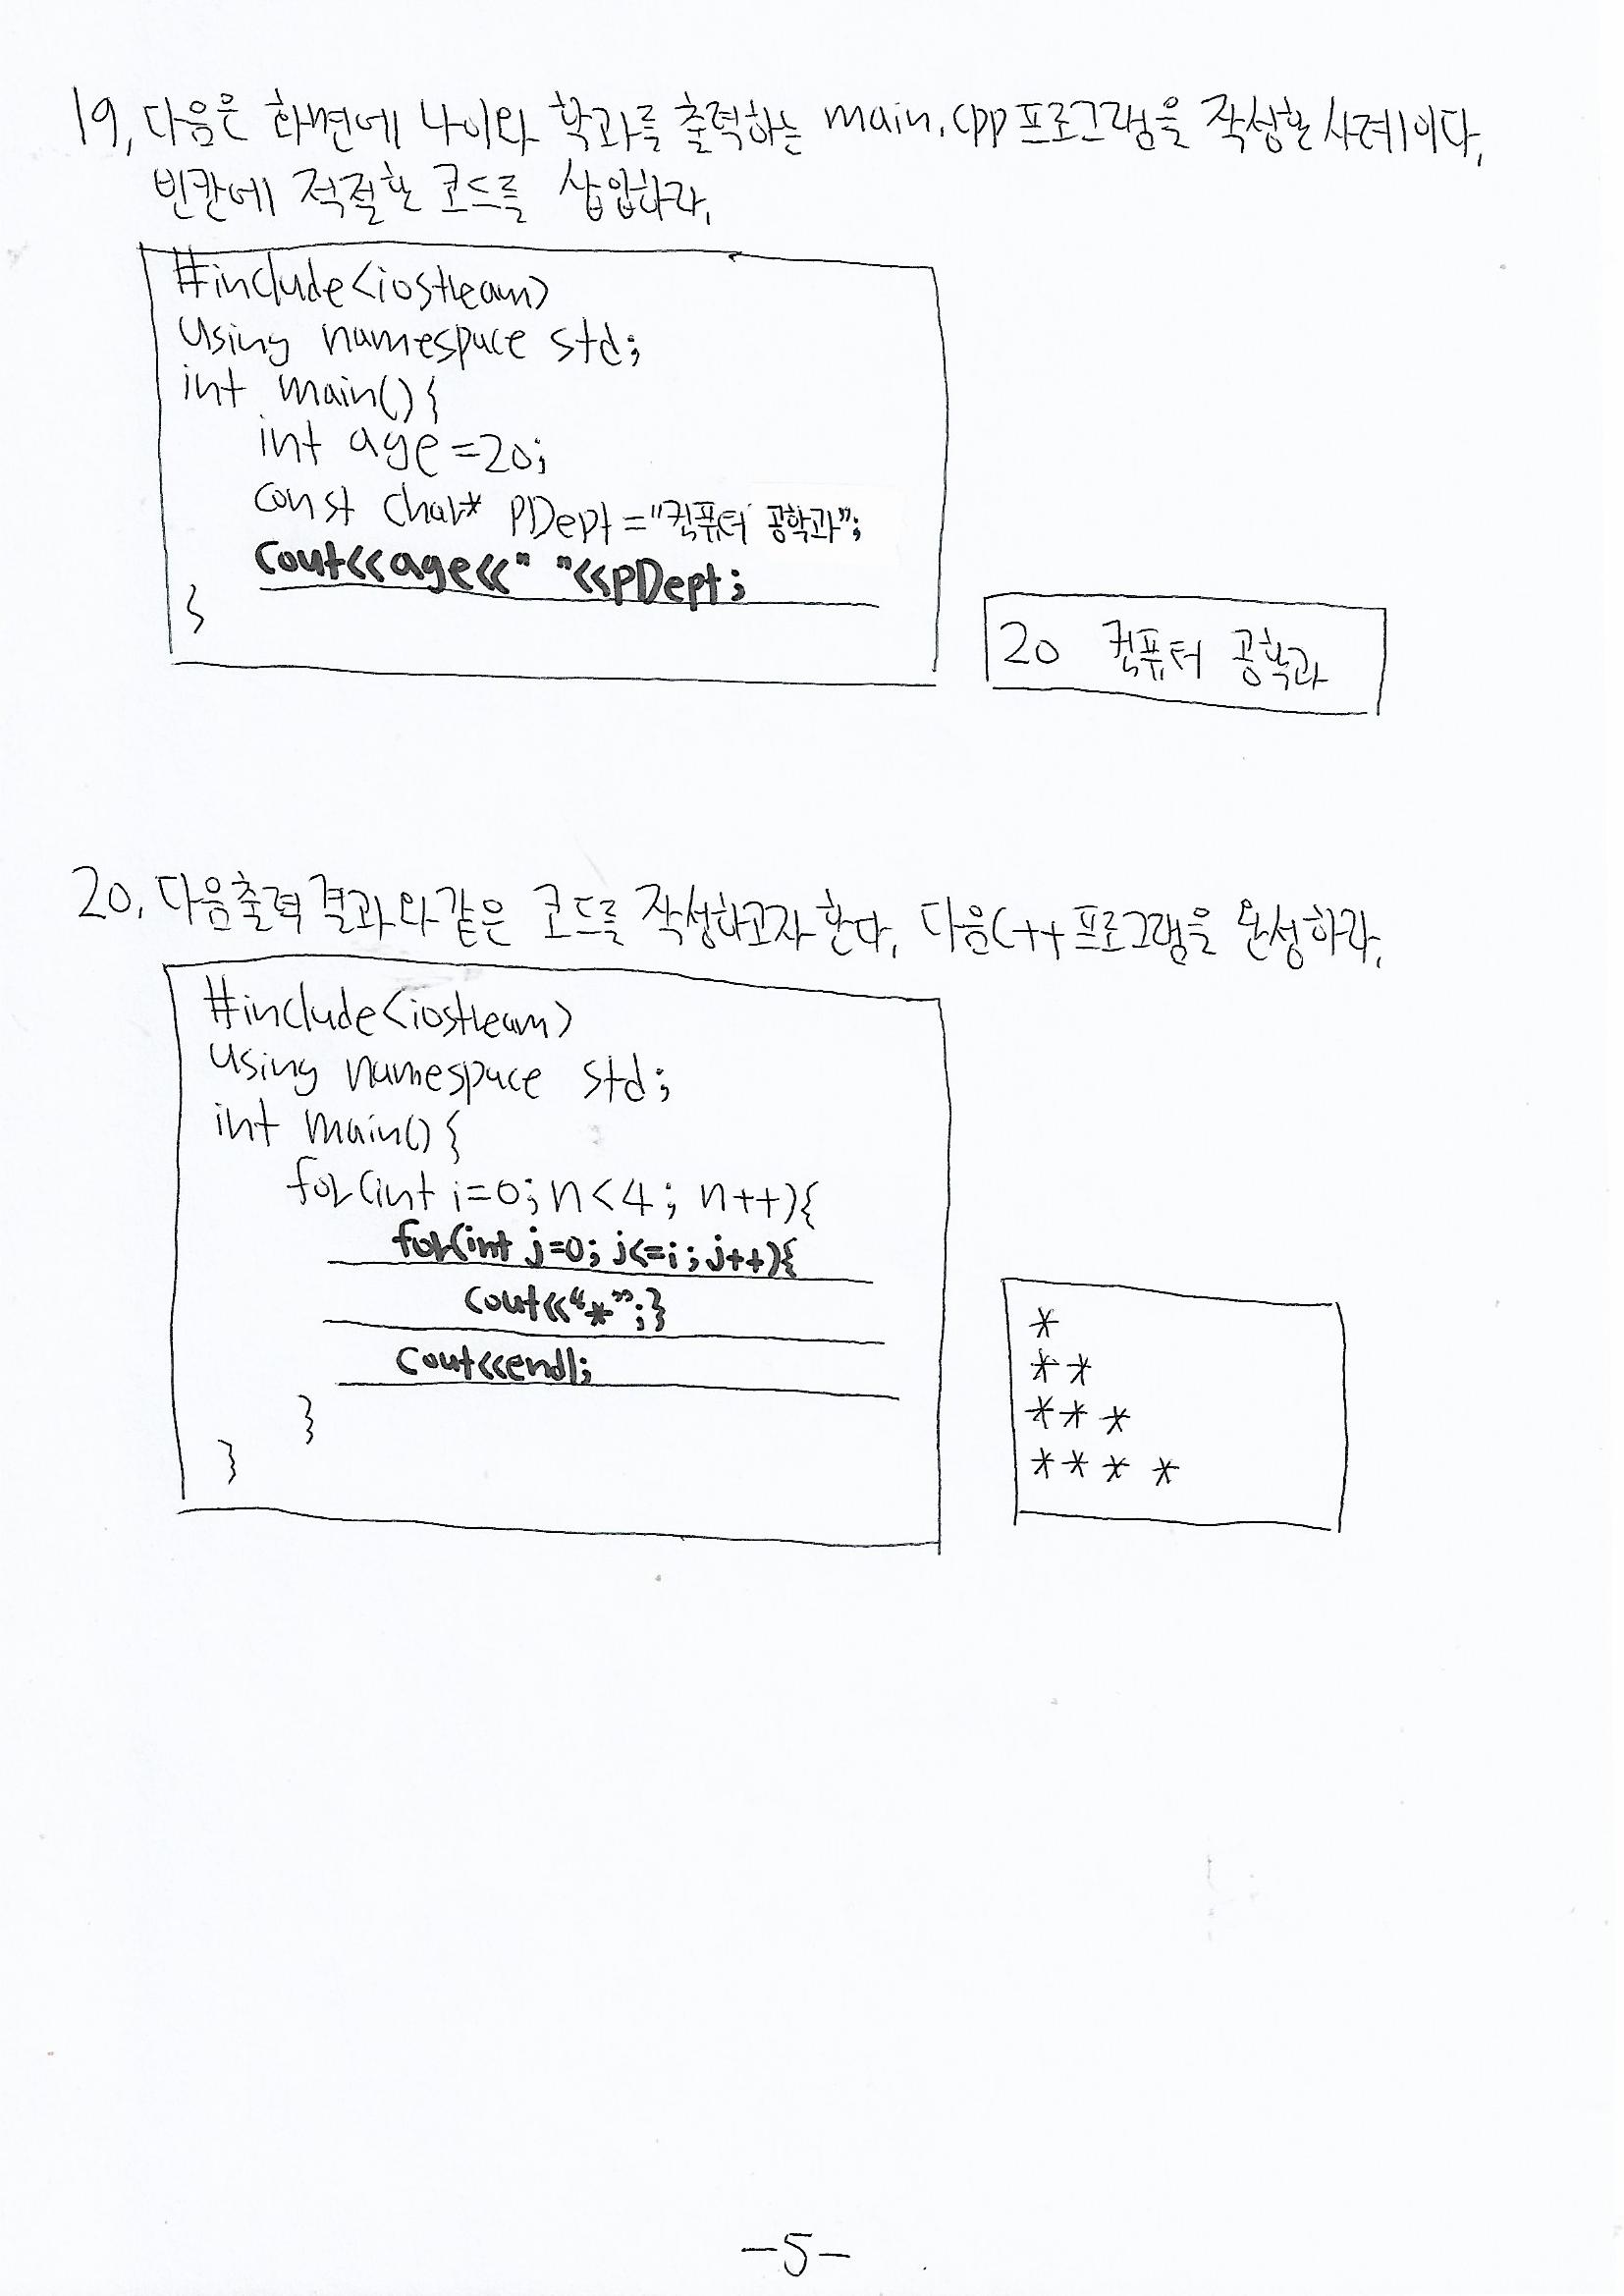 19. 다음은 화면에 나이와 학과를 출력하는 main.cpp 프로그램을 작성한 사례이다.
빈칸에 적절한 코드를 삽입하라.
#include<iostream>
using namespace std;
int main(){
int age=20;
const char* pDept="컴퓨터 공학과";
cout<<age<<" "<<pDept;
}
20 컴퓨터 공학과
20. 다음 출력 결과와 같은 코드를 작성하고자 한다. 다음 C++ 프로그램을 완성하라.
#include<iostream>
using namespace std;
int main(){
for(int i=0; n<4; n++){
for(int j=0; j<=i; j++){
cout<<"*";}
cout<<endl;
}
}
*
**
***
****
-5-